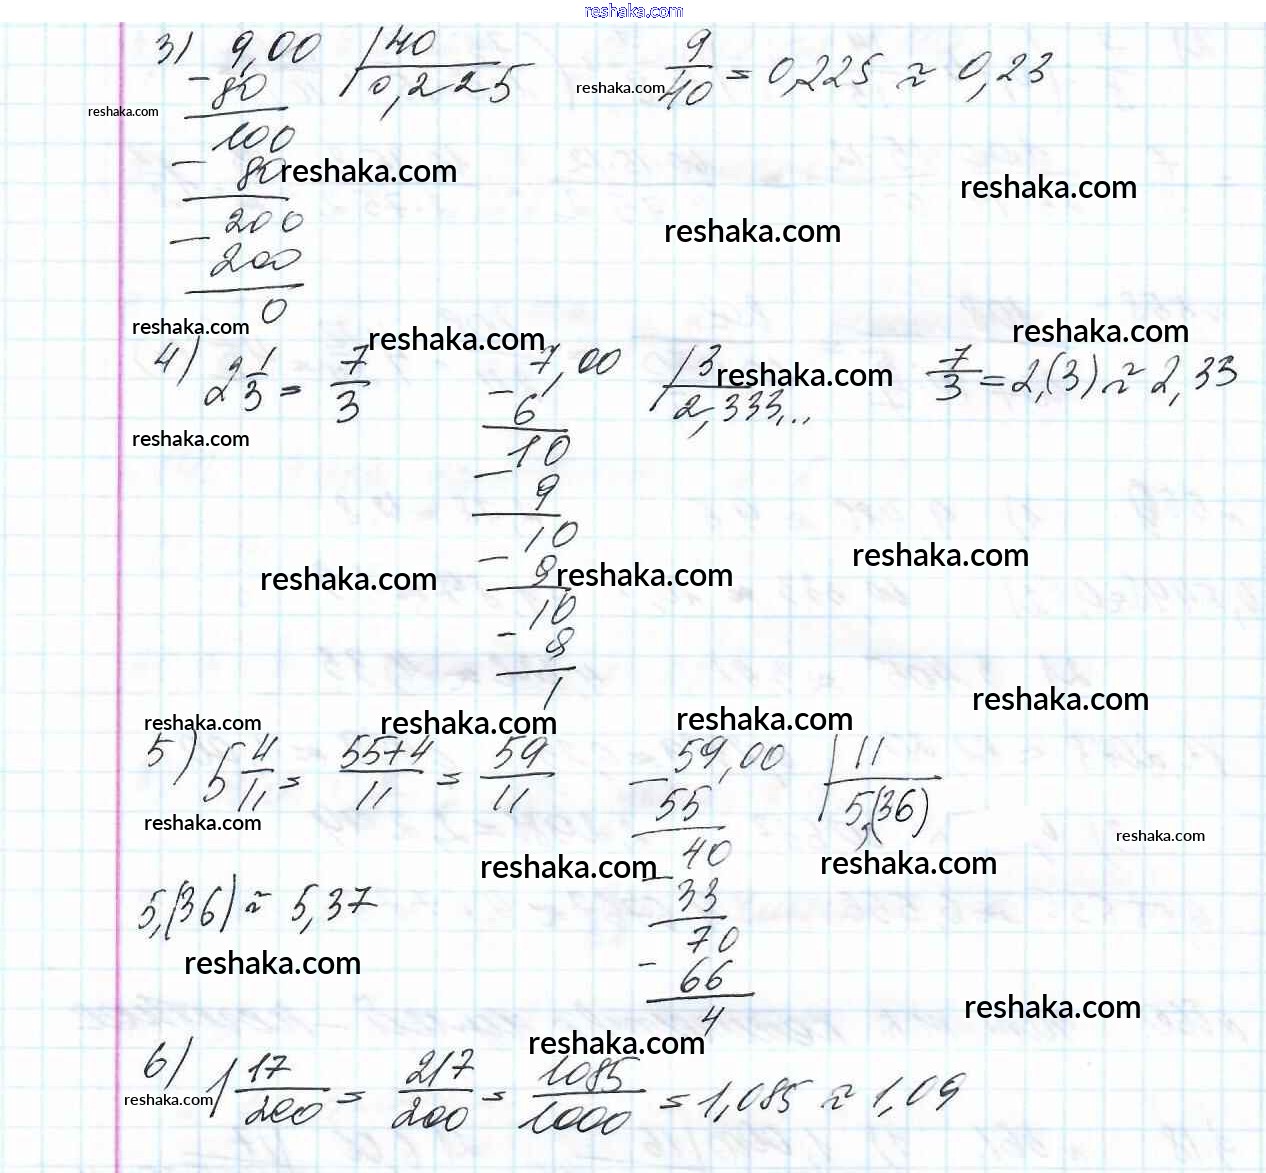 reshaka.com
3) 9,00 | 40 9/40 = 0,225 ≈ 0,23
- 80 0,225 reshaka.com
reshaka.com
100
- 80 reshaka.com reshaka.com
200 reshaka.com
- 200
0
reshaka.com reshaka.com reshaka.com
4) 2 1/3 = 7/3 7,00 | 3 reshaka.com 7/3 = 2,(3) ≈ 2,33
- 6 2,333...
reshaka.com 10
- 9
10 reshaka.com
reshaka.com - 9 reshaka.com
10
- 9
1 reshaka.com
reshaka.com reshaka.com reshaka.com
5) 5 4/11 = 55+4/11 = 59/11 59,00 | 11
- 55 5,(36)
reshaka.com reshaka.com
reshaka.com 40 reshaka.com
5,(36) ≈ 5,37 - 33
70
reshaka.com - 66
4 reshaka.com
reshaka.com
6) 1 17/200 = 217/200 = 1085/1000 = 1,085 ≈ 1,09
reshaka.com